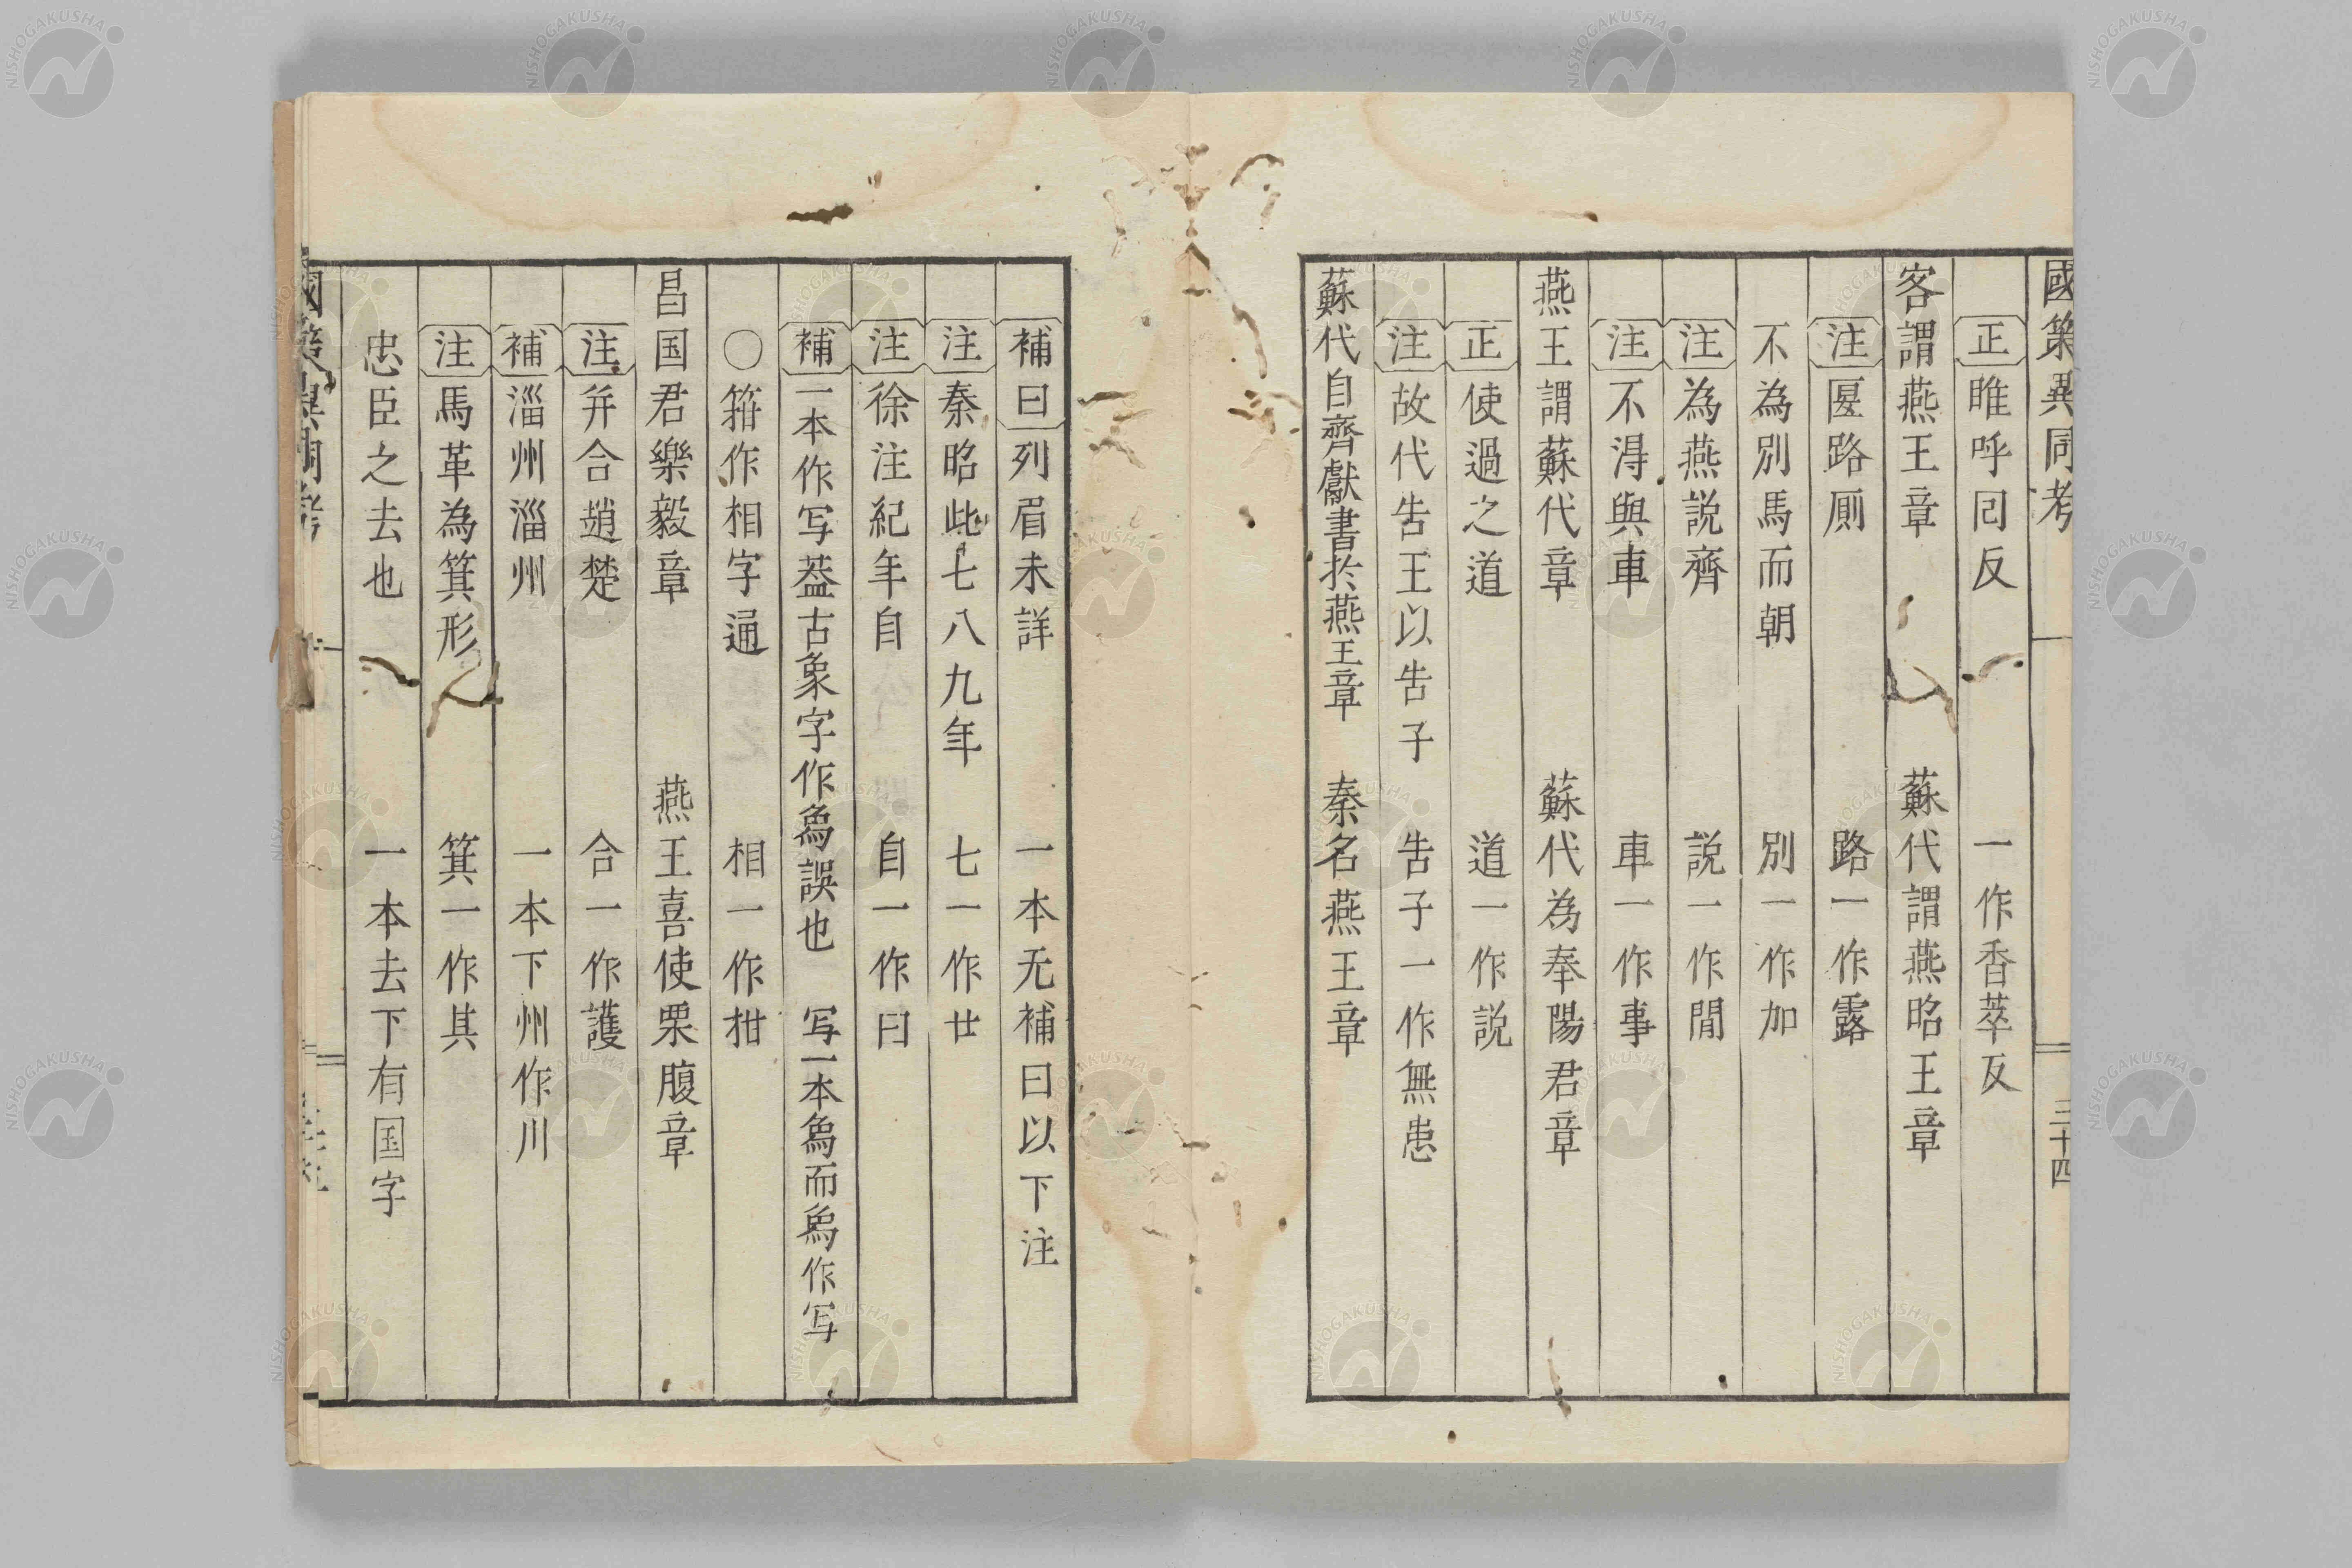 國策異同考 三十四
正 睢呼囘反 一作香萃反
客謂燕王章 蘇代謂燕昭王章
注 匽路厠 路一作露
不為別馬而朝 別一作加
注 為燕説齊 説一作閒
注 不淂與車 車一作事
燕王謂蘇代章 蘇代為奉陽君章
正 使過之道 道一作説
注 故代告王以告子 告子一作無患
蘇代自齊獻書於燕王章 秦名燕王章
補曰 列眉未詳 一本无補曰以下注
注 秦昭此七八九年 七一作廿
注 徐注紀年自 自一作曰
補 一本作写葢古象字作為誤也 写一本為而為作写
〇箝作相字通 相一作拑
昌国君樂毅章 燕王喜使栗腹章
注 并合趙楚 合一作護
補 淄州淄州 一本下州作川
注 馬革為箕形 箕一作其
忠臣之去也 一本去下有国字
國策異同考